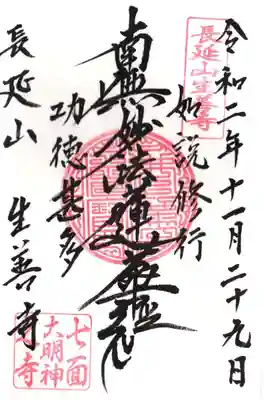 令和二年十一月二十九日
長延山生善寺
如説修行
南無妙法蓮華経
功徳甚多
長延山 生善寺
七面
大明神